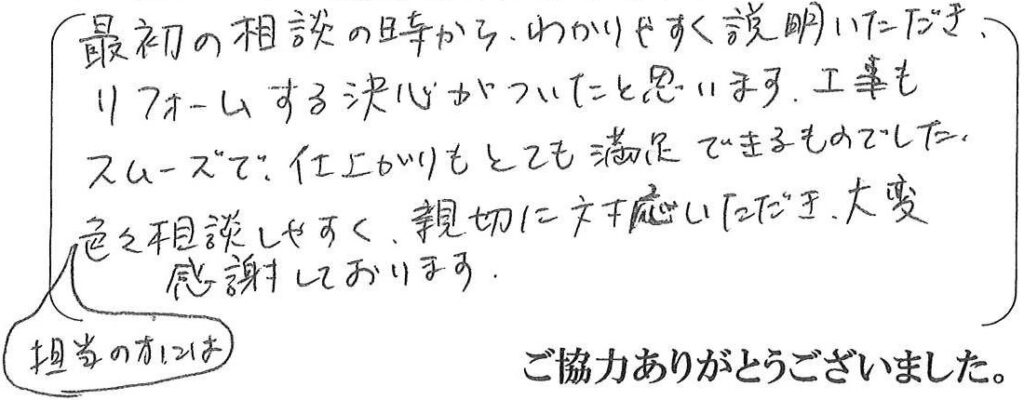 最初の相談の時から、わかりやすく説明いただき、
リフォームする決心がついたと思います。工事も
スムーズで、仕上がりもとても満足できるものでした。
色々相談しやすく、親切に対応いただき、大変
感謝しております。
担当の方には
ご協力ありがとうございました。